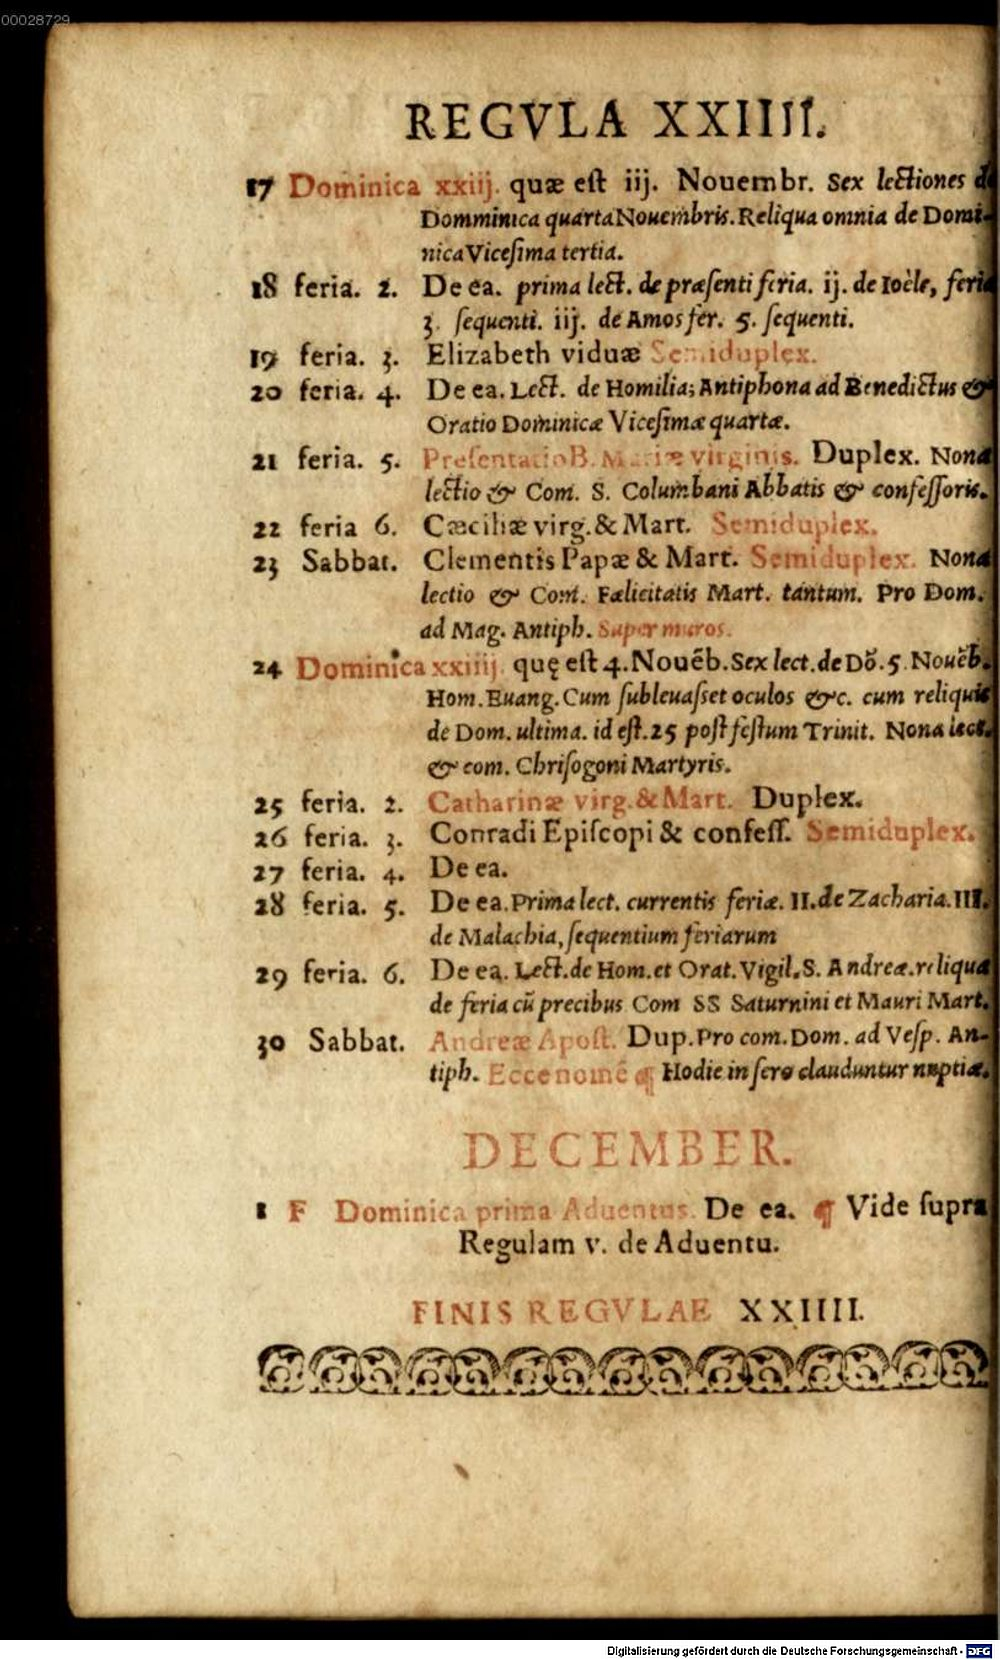 00028729
REGVLA XXIIII.
17 Dominica xxiij. quæ est iij. Nouembr. Sex lectiones de
Domminica quarta Nouembris. Reliqua omnia de Domi-
nica Vicesima tertia.
18 feria. 2. De ea. prima lect. de præsenti feria. ij. de Ioèle, feria
3. sequenti. iij. de Amos fer. 5. sequenti.
19 feria. 3. Elizabeth viduæ Semiduplex.
20 feria. 4. De ea. Lect. de Homilia; Antiphona ad Benedictus &
Oratio Dominicæ Vicesimæ quartæ.
21 feria. 5. Presentatio B. Mariæ virginis. Duplex. Nona
lectio & Com. S. Columbani Abbatis & confessoris.
22 feria 6. Cæciliæ virg. & Mart. Semiduplex.
23 Sabbat. Clementis Papæ & Mart. Semiduplex. Nona
lectio & Com. Fælicitatis Mart. tantum. Pro Dom.
ad Mag. Antiph. Super muros.
24 Dominica xxiiij. quę est 4. Nouēb. Sex lect. de Dō. 5. Nouēb.
Hom. Euang. Cum subleuasset oculos &c. cum reliquis
de Dom. ultima. id est. 25 post festum Trinit. Nona lect.
& com. Chrisogoni Martyris.
25 feria. 2. Catharinæ virg. & Mart. Duplex.
26 feria. 3. Conradi Episcopi & confess. Semiduplex.
27 feria. 4. De ea.
28 feria. 5. De ea. Prima lect. currentis feriæ. II. de Zacharia. III.
de Malachia, sequentium feriarum
29 feria. 6. De ea. Lect. de Hom. et Orat. Vigil. S. Andreæ. reliqua
de feria cū precibus Com SS Saturnini et Mauri Mart.
30 Sabbat. Andreæ Apost. Dup. Pro com. Dom. ad Vesp. An-
tiph. Ecce nomē ¶ Hodie in sero clauduntur nuptiæ.
DECEMBER.
1 F Dominica prima Aduentus. De ea. ¶ Vide supra
Regulam v. de Aduentu.
FINIS REGVLAE XXIIII.
Digitalisierung gefördert durch die Deutsche Forschungsgemeinschaft - DFG